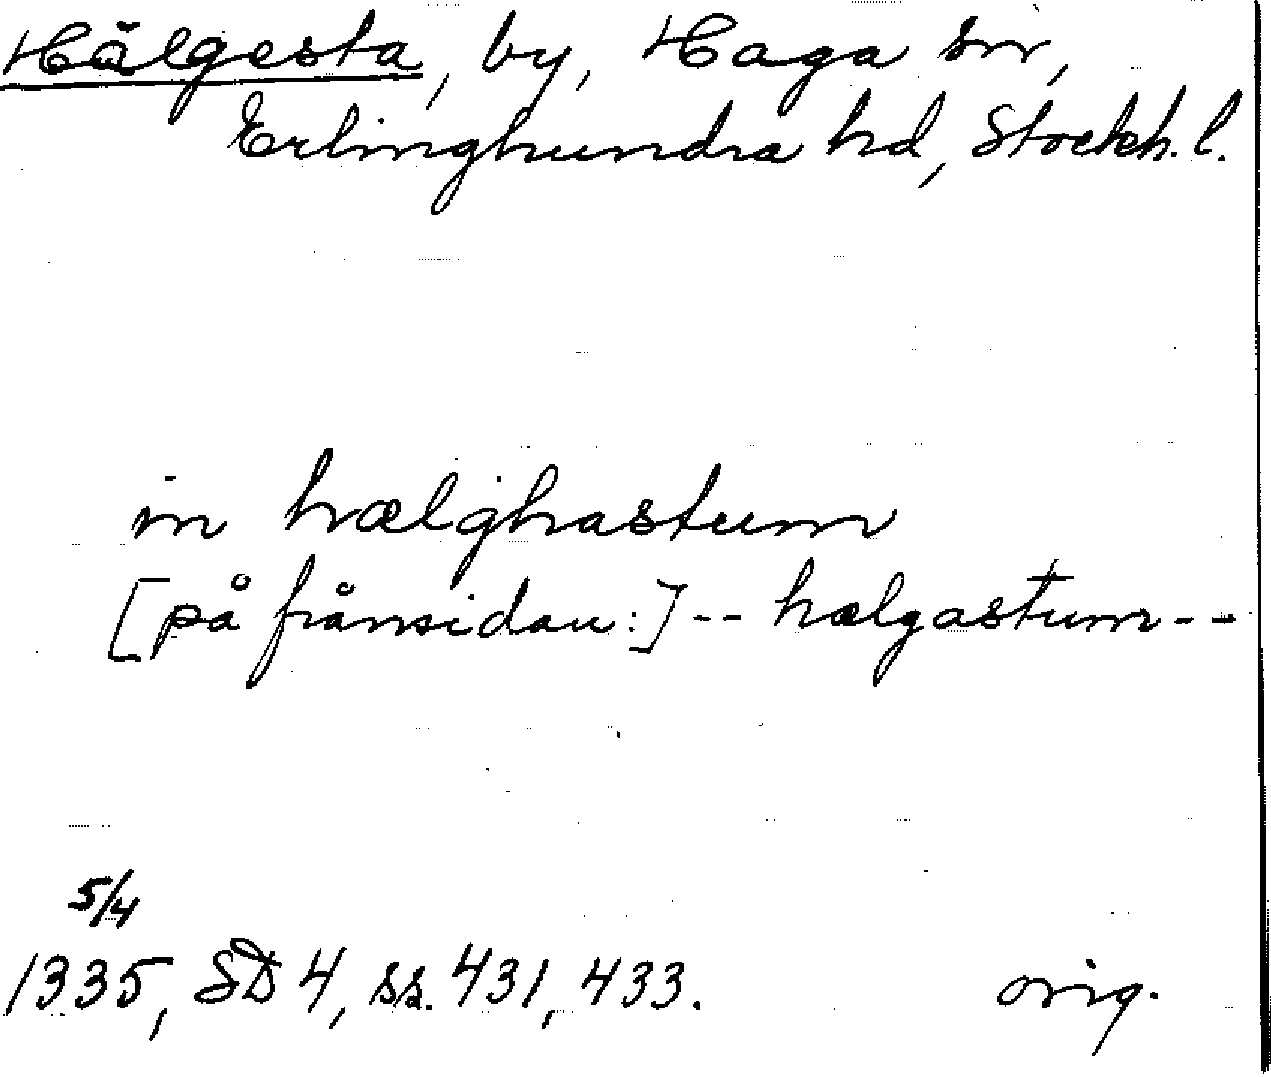 Hälgesta, by, Haga sn,
Erlinghundra hd, Stockh. l.
in hælghastum
[på frånsidan:] -- hælgastum --
5/4
1335, SD 4, ss. 431, 433. orig.